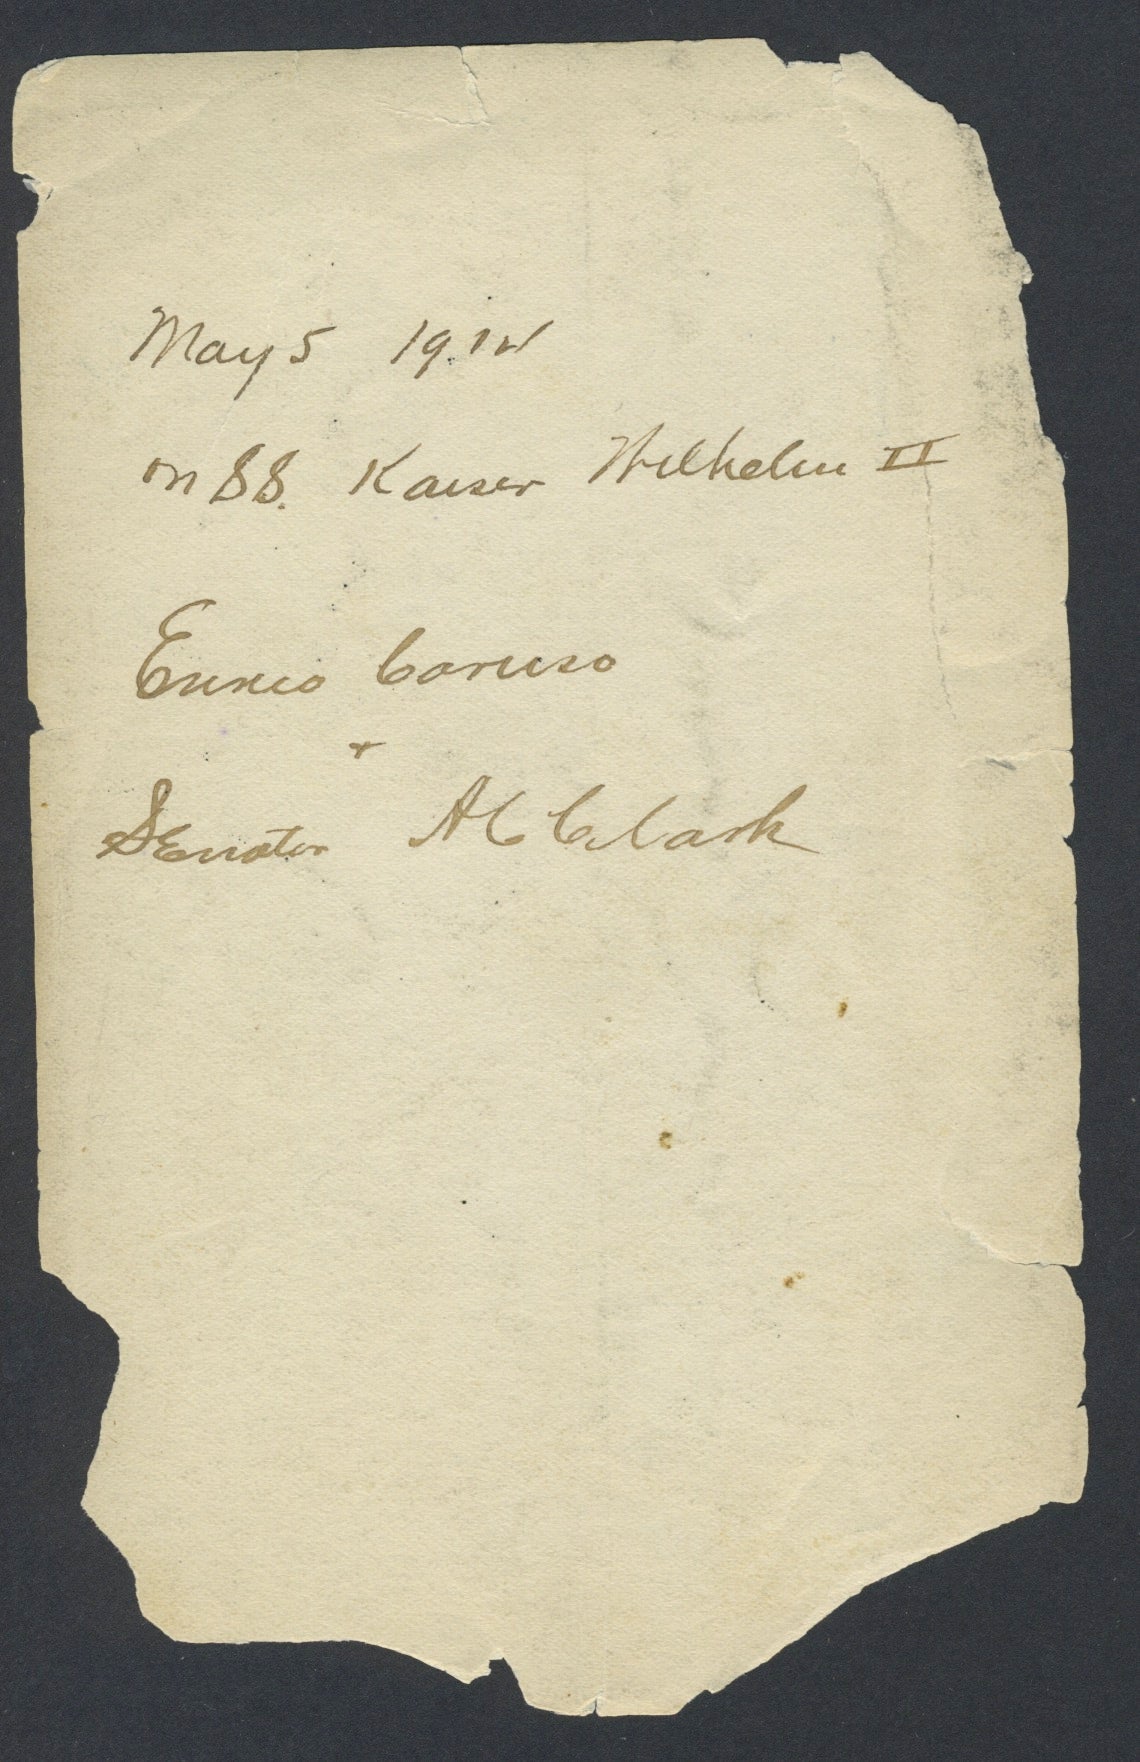 May 5
on SS. Kaiser Wilhelm II
Enrico Caruso
+
Senator Clark